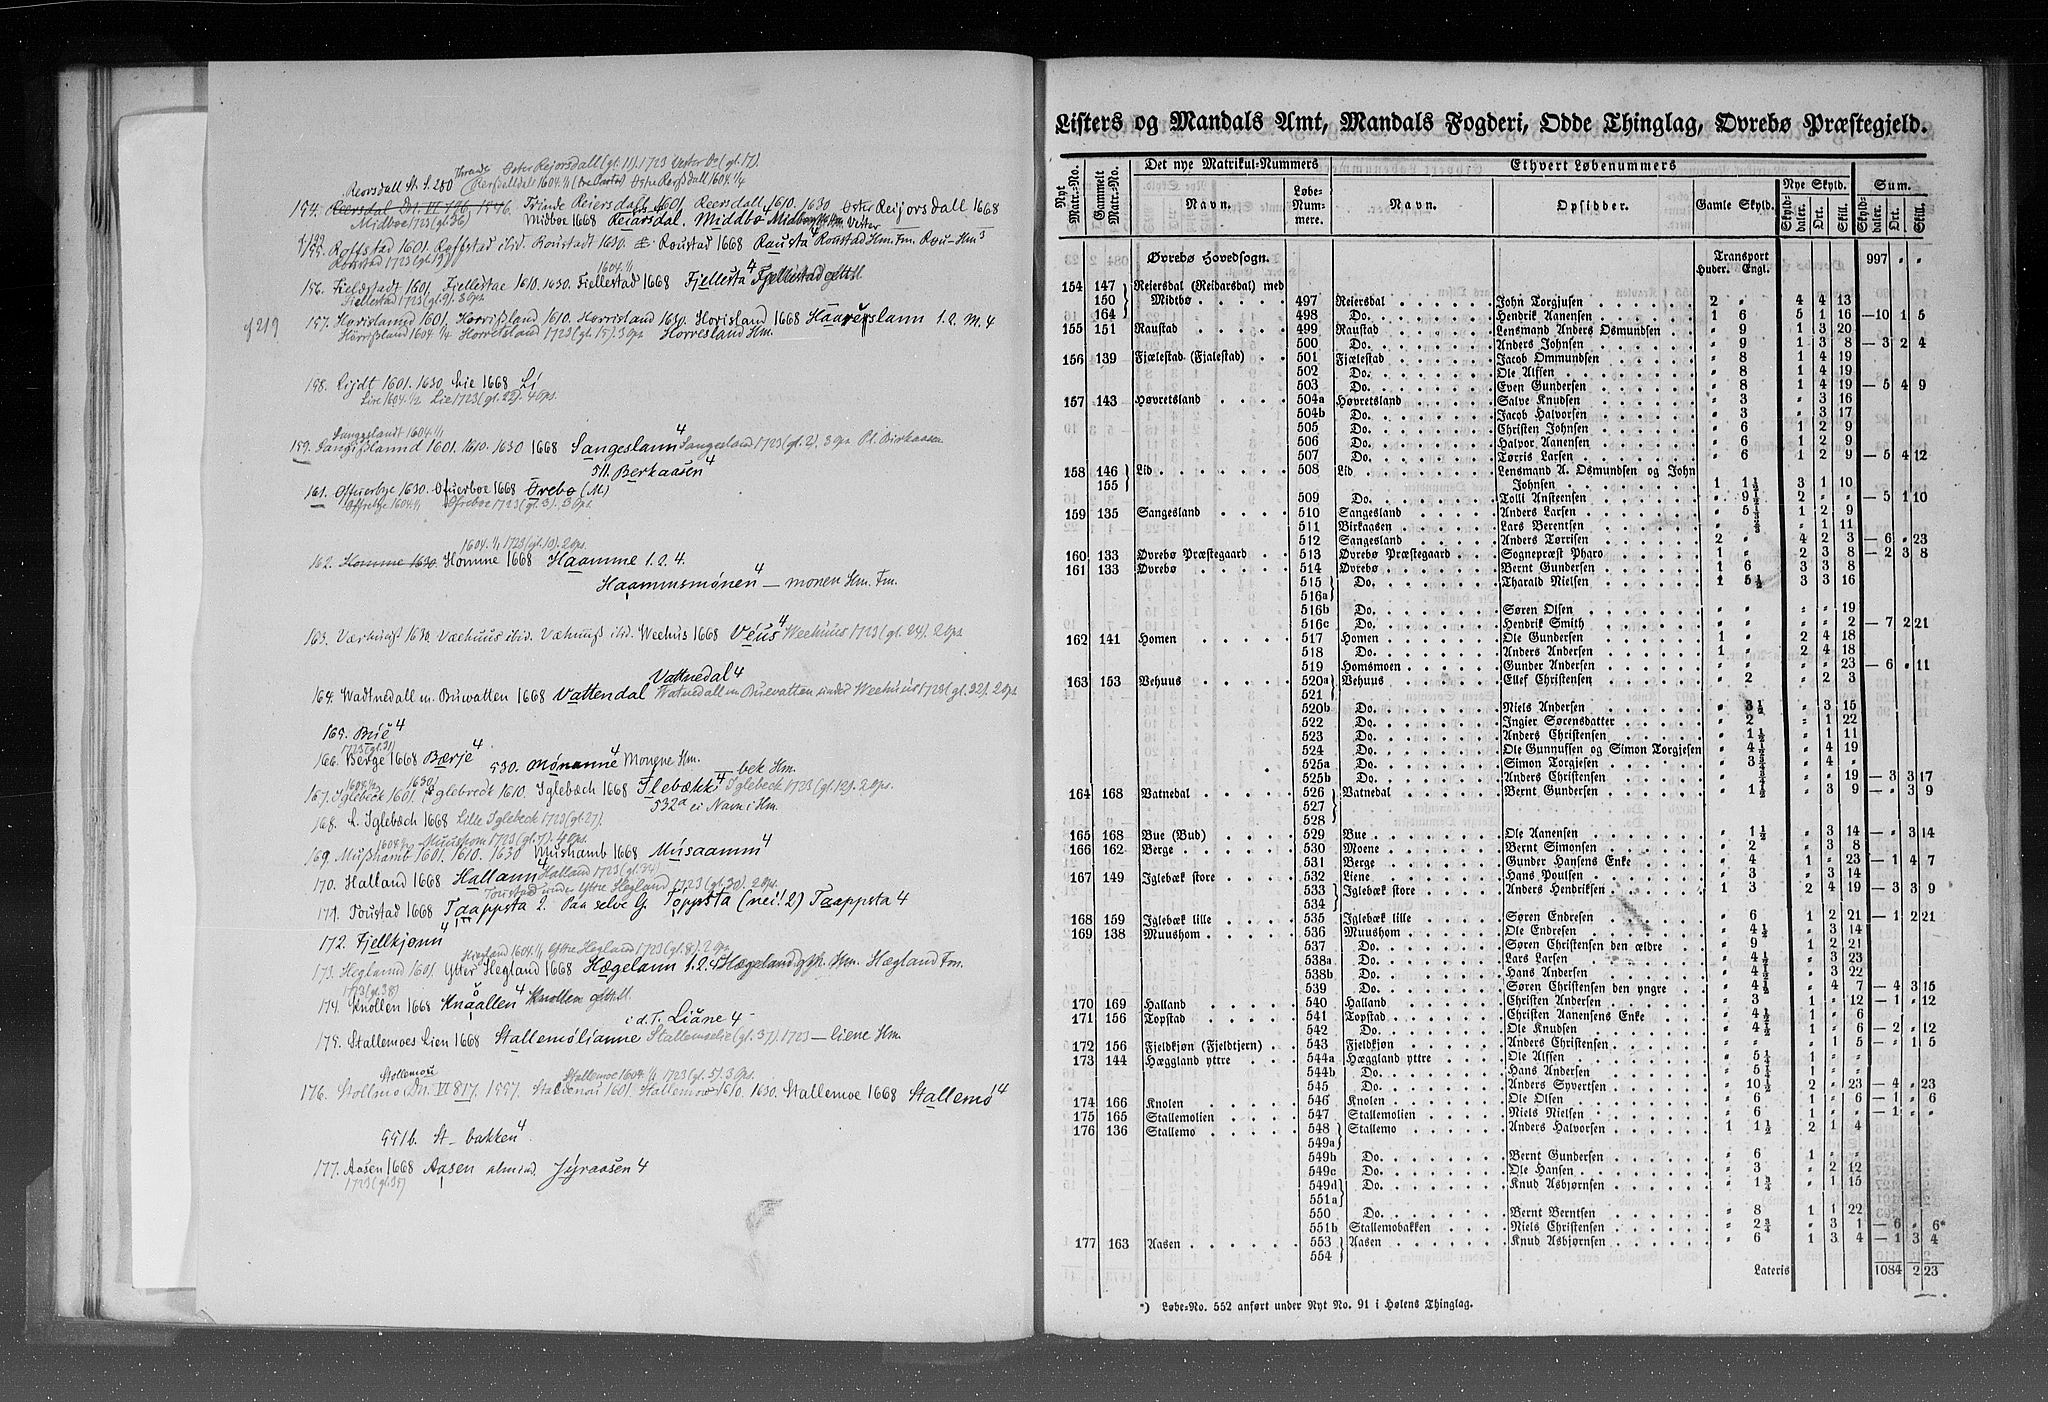 Reiersdall St. S. 280 Thrinde Oster Reijorsdall (gl. 11). 1723 Vester Do (gl. 17).
154. Reiersdal Dn. VI 196. 1556. Friende Reiersdall 1601. Reersdall 1610. 1630 Øster Reijorsdall 1668
Midboe 1723 (gl. 36) Midboe 1668 Reiärsdal. Middbø⁴
155. Roffstad 1601. Roffstad ibid. Roustadt 1630. Roustad 1668 Rausta⁴ Roustad Hm. Fm. Rou- Hm³
Roustad 1723 (gl. 9)
156. Fieldstadt 1601. Fjellestae 1610. 1630. Fiellestad 1668 Fjellesta⁴ Fjellestad
Fiellestad 1723 (gl. 9). 3 Gps.
157. Horrisland 1601. Horrißland 1610. Horrisland 1630. Horisland 1668 1.2. M. 4
Horrißland 1604 ¼ Horretsland 1723 (gl. 15). 3 Gps Horresland Hm.
158. Lijdt 1601. 1630. Lie 1668 Li
Lire 1604. ½ Lie 1723 (gl. 22). 4 Gps.
Sangeslandt 1604. ¼
159. Sangißlannd 1601. 1610. 1630 1668 Sangeslann⁴ Sangesland 1723 (gl. 2). 3 Gps Pl. Birkaasen
511. Berkaasen⁴
161. Offuerbye 1630. Ofuerboe 1668 Ørebø (M)
Offrebye 1604. ¼ Øfreboe 1723 (gl. 3). 3 Gps.
1604. ¼ 1723 (gl. 13). 2 Gps.
162. Homme 1630. Homne 1668 Haamme 1. 2. 4.
Haammsmønen⁴ — monen Hm. Fm.
163. Væehuus ibid. Weehus 1668 Véus⁴ Weehuus 1723 (gl. 24). 2 Gps
Vattnedal 4
164. Wadtnedall m. Buwatten 1668 Vattendal Watnedall m. Buewatten under Weehuus 1723 (gl. 32). 2 Gps
165. Búé⁴
1723 (gl. 31)
166. Berge 1668 Bærje⁴ 530. Mønanne⁴ Monene Hm.
167. Iglebeck 1601. Iglebredt 1610. Iglebæch 1668 Ilebækk⁴ — bek Hm. Iglebeck 1723 (gl. 12). 2 Gps.
532a ei Navn i Hm.
168. L. Iglebæch 1668 Lille Iglebeck 1723 (gl. 27).
Muushom 1723 (gl. 7). 4 Gps.
169. Mußhamb 1601. 1610. 1630 Mushamb 1668 Músaamm⁴
170. Halland 1668 Hallann⁴ Halland 1723 (gl. 34)
Toustad under Yttre Hegland 1723 (gl. 30). 2 Gps.
171. Toustad 1668 Taappsta 2. Paa selve G. Toppsta (nei! 2) Taappsta 4
172. Fjellkjønn⁴
Hiegland 1604. ¼ Yttre Hegland 1723 (gl. 8). 2 Gps
173. Heglannd 1601 Ytter Hegland 1668 Hægelann 1. 2. 4 Hægeland Hm. Hægland Fm.
1723 (gl. 38)
174. Knollen 1668 Knåallen⁴ Knollen
i d. T. Liane 4
175. Stallemoes Lien 1668 Stallemølianne Stallemoelie (gl. 37). 1723 — liene Hm.
Stollemou Stallemoe 1604. ¼ 1723 (gl. 5). 3 Gps.
176. Stollmo Dn. VI 817. 1557. Stallemou 1601. Stallemoe 1610. 1630. Stallemoe 1668 Stallemø⁴
551b. St- bakken⁴.
177. Aasen 1668 Aasen almind. Jyraasen 4
1723 (gl. 35)
Listers og Mandals Amt, Mandals Fogderi, Odde Thinglag, Øvrebø Præstegjeld.
Nyt Matr.-No. Gammelt Matr.-No. Det nye Matrikul-Nummers Ethvert Løbenummers
Navn. Løbe-Nummere. Navn. Opsidder. Gamle Skyld. Nye Skyld. Sum.
Skylddaler. Ort. Skill. Skylddaler. Ort. Skill.
Øvrebø Hovedsogn. Transport 997 " "
Huder. Engl.
154 147 Reiersdal (Reidarsdal) med
150 Midtbø 497 Reiersdal John Torgjusen 2 " 4 4 13
164 498 Do. Hendrik Aanensen 1 6 5 1 16 —10 1 5
155 151 Raustad 499 Raustad Lensmand Anders Osmundsen " 9 1 3 20
500 Do. Anders Johnsen " 9 1 3 8 — 3 2 4
156 139 Fjælestad (Fjalestad) 501 Fjælestad Jacob Ommundsen " 8 1 4 19
502 Do. Ole Alfsen " 8 1 4 19
503 Do. Even Gundersen " 8 1 4 19 — 5 4 9
157 143 Høvretsland 504a Høvretsland Salve Knudsen " 3 " 3 16
504b Do. Jacob Halvorsen " 3 " 3 17
505 Do. Christen Johnsen " 6 1 2 9
506 Do. Halvor Aanensen " 6 1 2 9
507 Do. Torris Larsen " 6 1 2 9 — 5 4 12
158 146 Lid 508 Lid Lensmand A. Osmundsen og John
155 Johnsen 1 1½ 3 1 10
509 Do. Tolli Ansteensen " 9½ 2 " " — 5 1 10
159 135 Sangesland 510 Sangesland Anders Larsen " 5 1 2 9
511 Birkaasen Lars Berentsen " " 1 11
512 Sangesland Anders Torrisen 2 " 4 2 3 — 6 " 23
160 133 Øvrebø Præstegaard 513 Øvrebø Præstegaard Sognepræst Pharo 1 " 2 3 8 — 2 3 8
161 133 Øvrebø 514 Øvrebø Bernt Gundersen 1 6 3 3 8
515 Do. Tharald Nielsen 1 5½ 3 3 16
516a
516b Do. Søren Olsen " " " " 19
516c Do. Hendrik Smith " " " " 2 — 7 2 21
162 141 Homen 517 Homen Ole Gundersen 1 " 2 4 18
518 Do. Anders Andersen 1 " 2 4 18
519 Homsmoen Gunder Andersen " " " " 23 — 6 " 11
163 153 Vehuus 520a Vehuus Ellef Christensen " 2 " 2 3
521
520b Do. Niels Andersen " 3½ " 3 15
522 Do. Ingier Sørensdatter " 2 " 1 22
523 Do. Anders Christensen " 1½ " 1 11
524 Do. Ole Gunnufsen og Simon Torgjesen " 4½ " 4 19
525a Do. Simon Torgjesen " 3 " 4 "
525b Do. Anders Christensen " " " 19 — 3 3 17
164 168 Vatnedal 526 Vatnedal Bernt Gundersen " 1½ " 3 9 — " 3 9
527
528
165 168 Bue (Bud) 529 Bue Ole Aanensen " 1½ " 3 14 — " 3 14
166 162 Berge 530 Moene Bernt Simonsen " 2 " 3 8
531 Berge Gunder Hansens Enke " 4 1 " 23 — 1 4 7
167 149 Iglebæk store 532 Liene Hans Poulsen " 3 " 3 14
533 Iglebæk store Anders Hendriksen 1 3 2 4 19 — 3 3 9
534
168 159 Iglebæk lille 535 Iglebæk lille Søren Endresen " 6 1 2 21 — 1 2 21
169 138 Muushom 536 Muushom Ole Endresen " 4½ " 3 14
537 Do. Søren Christensen den ældre " 9 1 2 21
538a Do. Lars Larsen " 4½ " 3 23
538b Do. Hans Andersen " 4½ " 3 22
539 Do. Søren Christensen den yngre " 4½ " 4 7 — 4 3 15
170 169 Halland 540 Halland Christen Andersen " 3 1 " 12 — 1 " 12
171 156 Topstad 541 Topstad Christen Aanensens Enke " 4½ 1 " 6
542 Do. Ole Knudsen " 4½ 1 " 6 — 2 " 12
172 156 Fjeldkjøn (Fjeldtjern) 543 Fjeldkjøn Anders Christensen " " " 1 5 — " 1 5
173 144 Hæggland yttre 544a Hæggland yttre Ole Alfsen " 5¼ 1 " "
544b Do. Hans Andersen " 5¼ 1 " "
545 Do. Anders Syvertsen " 10½ 2 " 23 — 4 " 23
174 166 Knolen 546 Knolen Ole Olsen " 6 1 " 6 — 1 " 6
175 165 Stallemolien 547 Stallemolien Niels Nielsen " 6 1 " " — 1 " "
176 136 Stallemo 548 Stallemo Anders Halvorsen 1 1½ 2 1 4
549a
549b Do. Bernt Gundersen " 6 1 " "
549c Do. Ole Hansen " 3 " 2 12
549d Do. Knud Asbjørnsen " 1¾ " 1 15
551a
550 Do. Bernt Berntsen " 8 1 1 22
551b Stallemobakken Niels Christensen " 2¾ " 3 1 — 6 " 6*
177 163 Aasen 553 Aasen Knud Asbjørnsen " 6 1 3 4 — 1 3 4
554
Lateris 1084 2 23
*) Løbe-No. 552 anført under Nyt No. 91 i Holens Thinglag.